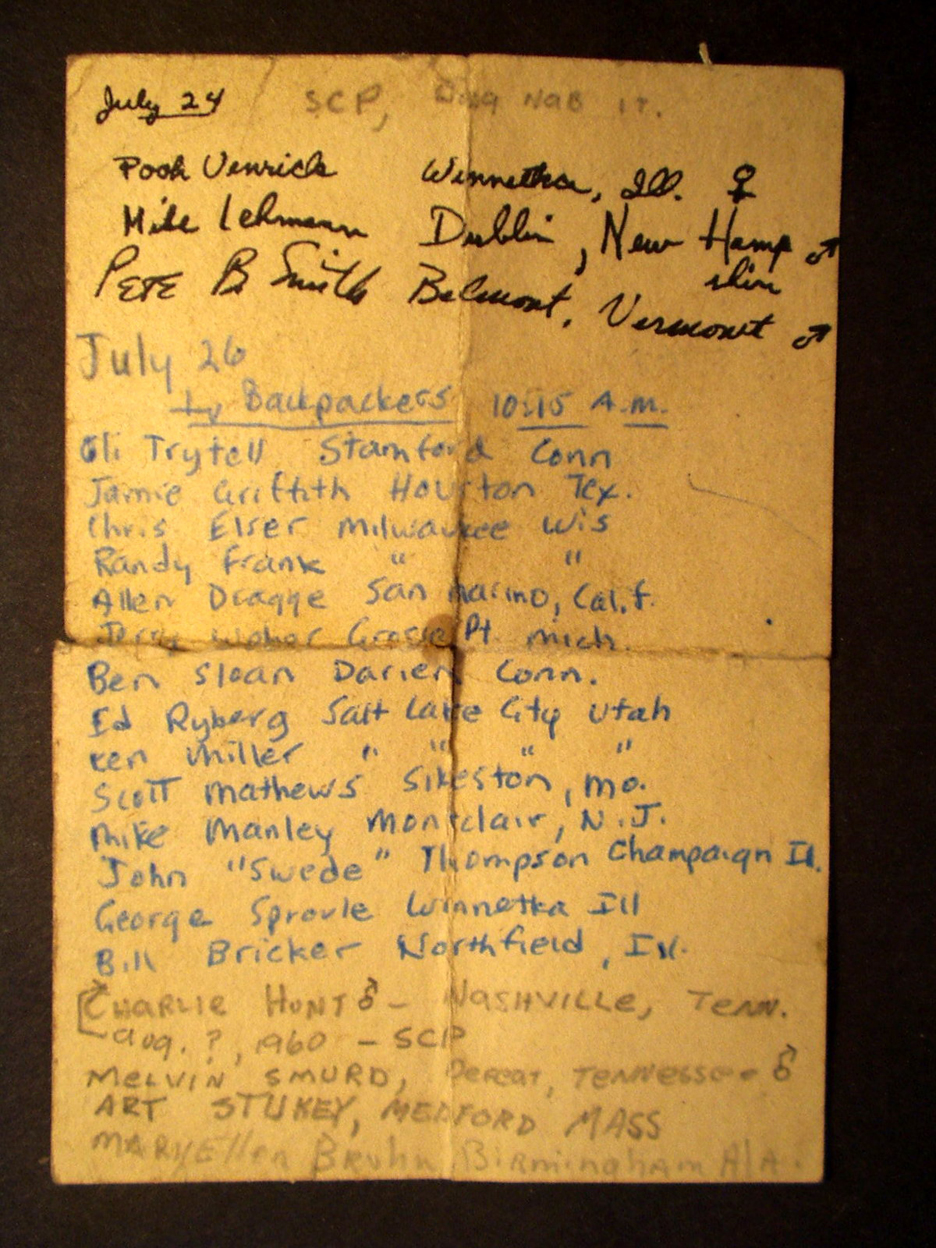 July 24 SCP, Dag Nab It.
Pooh Venrick Winnetka, Ill. ♀
Mike Lehmann Dublin, New Hamp ♂
shire
PETE B Smith Belmont, Vermont ♂
July 26
Backpackers 10:15 A.M.
Oli Trytell Stamford Conn
Jamie Griffith Houston Tex.
Chris Elser Milwaukee Wis
Randy Frank " "
Allen Dragge San Marino, Calif.
Jerry Grosse Pt. Mich.
Ben Sloan Darien Conn.
Ed Ryberg Salt Lake City Utah
Ken Miller " " " "
Scott Mathews Sikeston, Mo.
Mike Manley Montclair, N.J.
John "Swede" Thompson Champaign Ill.
George Sproule Winnetka Ill
Bill Bricker Northfield, Ill.
CHARLIE HUNT ♂ - NASHVILLE, TENN.
aug. ?, 1960 - SCP
MELVIN SMURD, DEFEAT, TENNESSEE ♂
ART STUKEY, MEDFORD MASS
MARYEllen Bruhn Birmingham AlA.